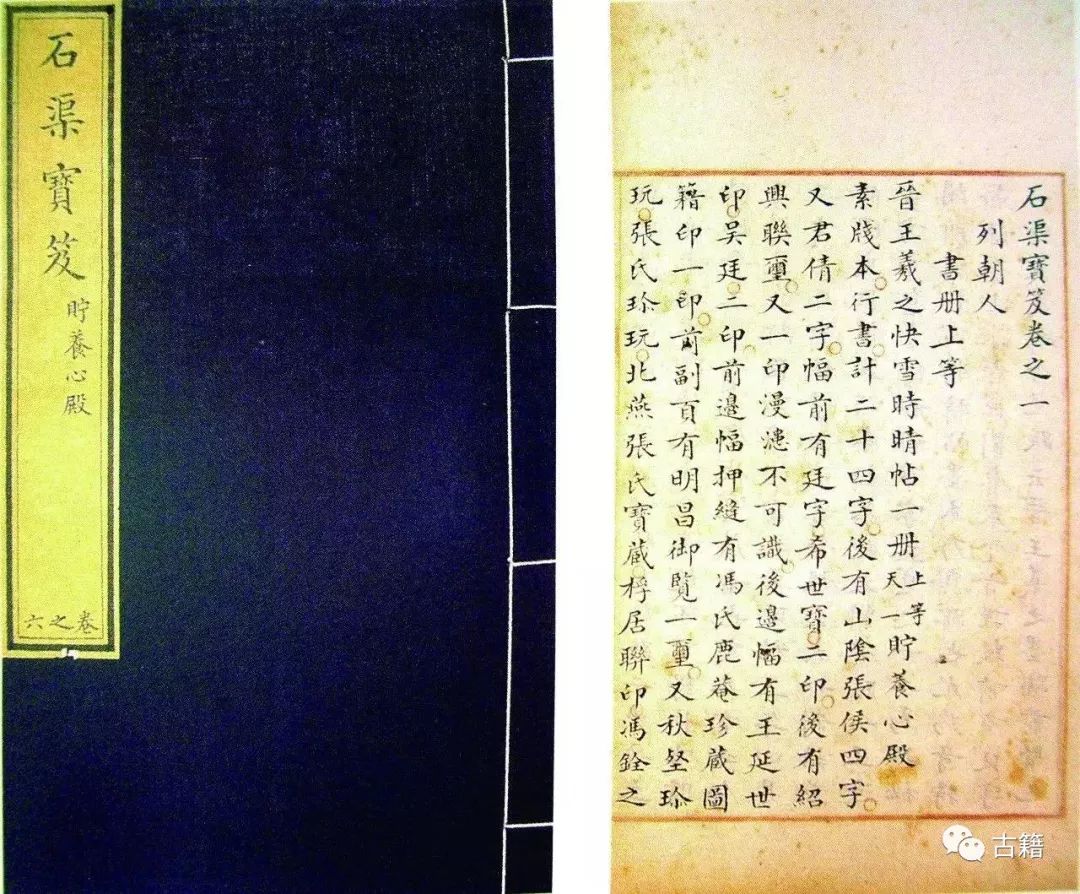 石渠寶笈
貯養心殿
卷之六
石渠寶笈卷之一
列朝人
書册上等
晉王羲之快雪時晴帖一册上等天一貯養心殿
素牋本行書計二十四字後有山陰張侯四字
又君倩二字幅前有廷字希世寶二印後有紹
興聯璽又一印漫漶不可識後邊幅有王延世
印吴廷二印前邊幅押縫有馮氏鹿菴珍蔵圖
籍印一印前副頁有明昌御覧一璽又秋壑珎
玩張氏珎玩北燕張氏寶蔵桴居聯印馮銓之
古籍